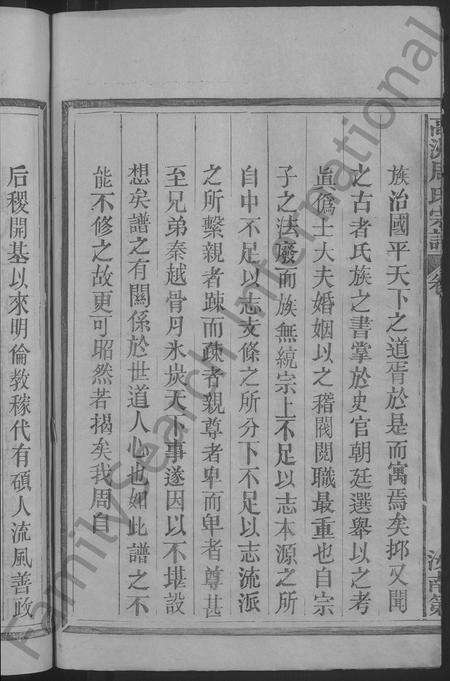 族治國平天下之道胥於是而寓焉矣抑又聞
之古者氏族之書掌於史官朝廷選舉以之考
眞僞士大夫婚姻以之稽閥閱職最重也自宗
子之法廢而族無統宗上不足以志本源之所
自中不足以志支條之所分下不足以志流派
之所繫親者踈而疎者親尊者卑而卑者尊甚
至兄弟秦越骨月氷炭天下事遂因以不堪設
想矣譜之有關係於世道人心也如此譜之不
能不修之故更可昭然若揭矣我周自
后稷開基以來明倫教稼代有碩人流風善政
周氏宗譜
卷
汝南
FamilySearch International